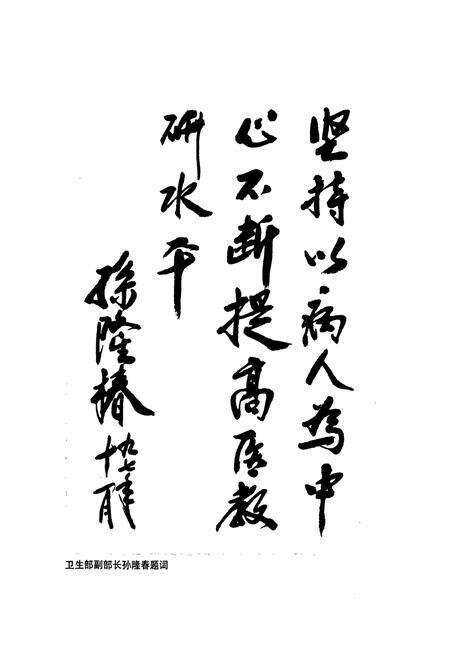 坚持以病人为中
心不断提高医教
研水平
孫隆椿
九七年
十月
卫生部副部长孙隆春题词